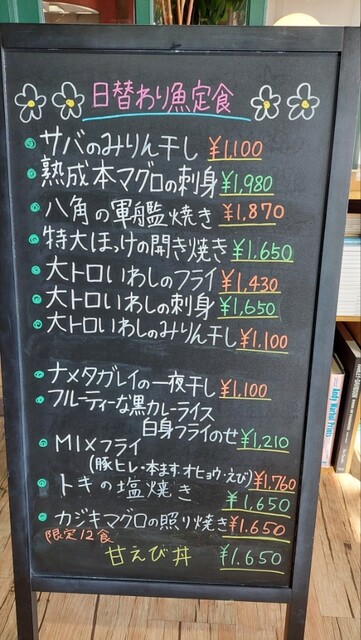 日替わり魚定食
サバのみりん干し ¥1,100
熟成本マグロの刺身 ¥1,980
八角の軍艦焼き ¥1,870
特大ほっけの開き焼き ¥1.650
大トロいわしのフライ ¥1,430
大トロいわしの刺身 ¥1,650
大トロいわしのみりん干し ¥1.100
ナメタガレイの一夜干し ¥1,100
フルーティーな黒カレーライス
白身フライのせ ¥1,210
MIXフライ
(豚ヒレ・本ます・オヒョウ・えび) ¥1,760
トキの塩焼き ¥1,650
カジキマグロの照り焼き ¥1.650
限定12食
甘えび丼 ¥1.650
Andy Warhol Prints